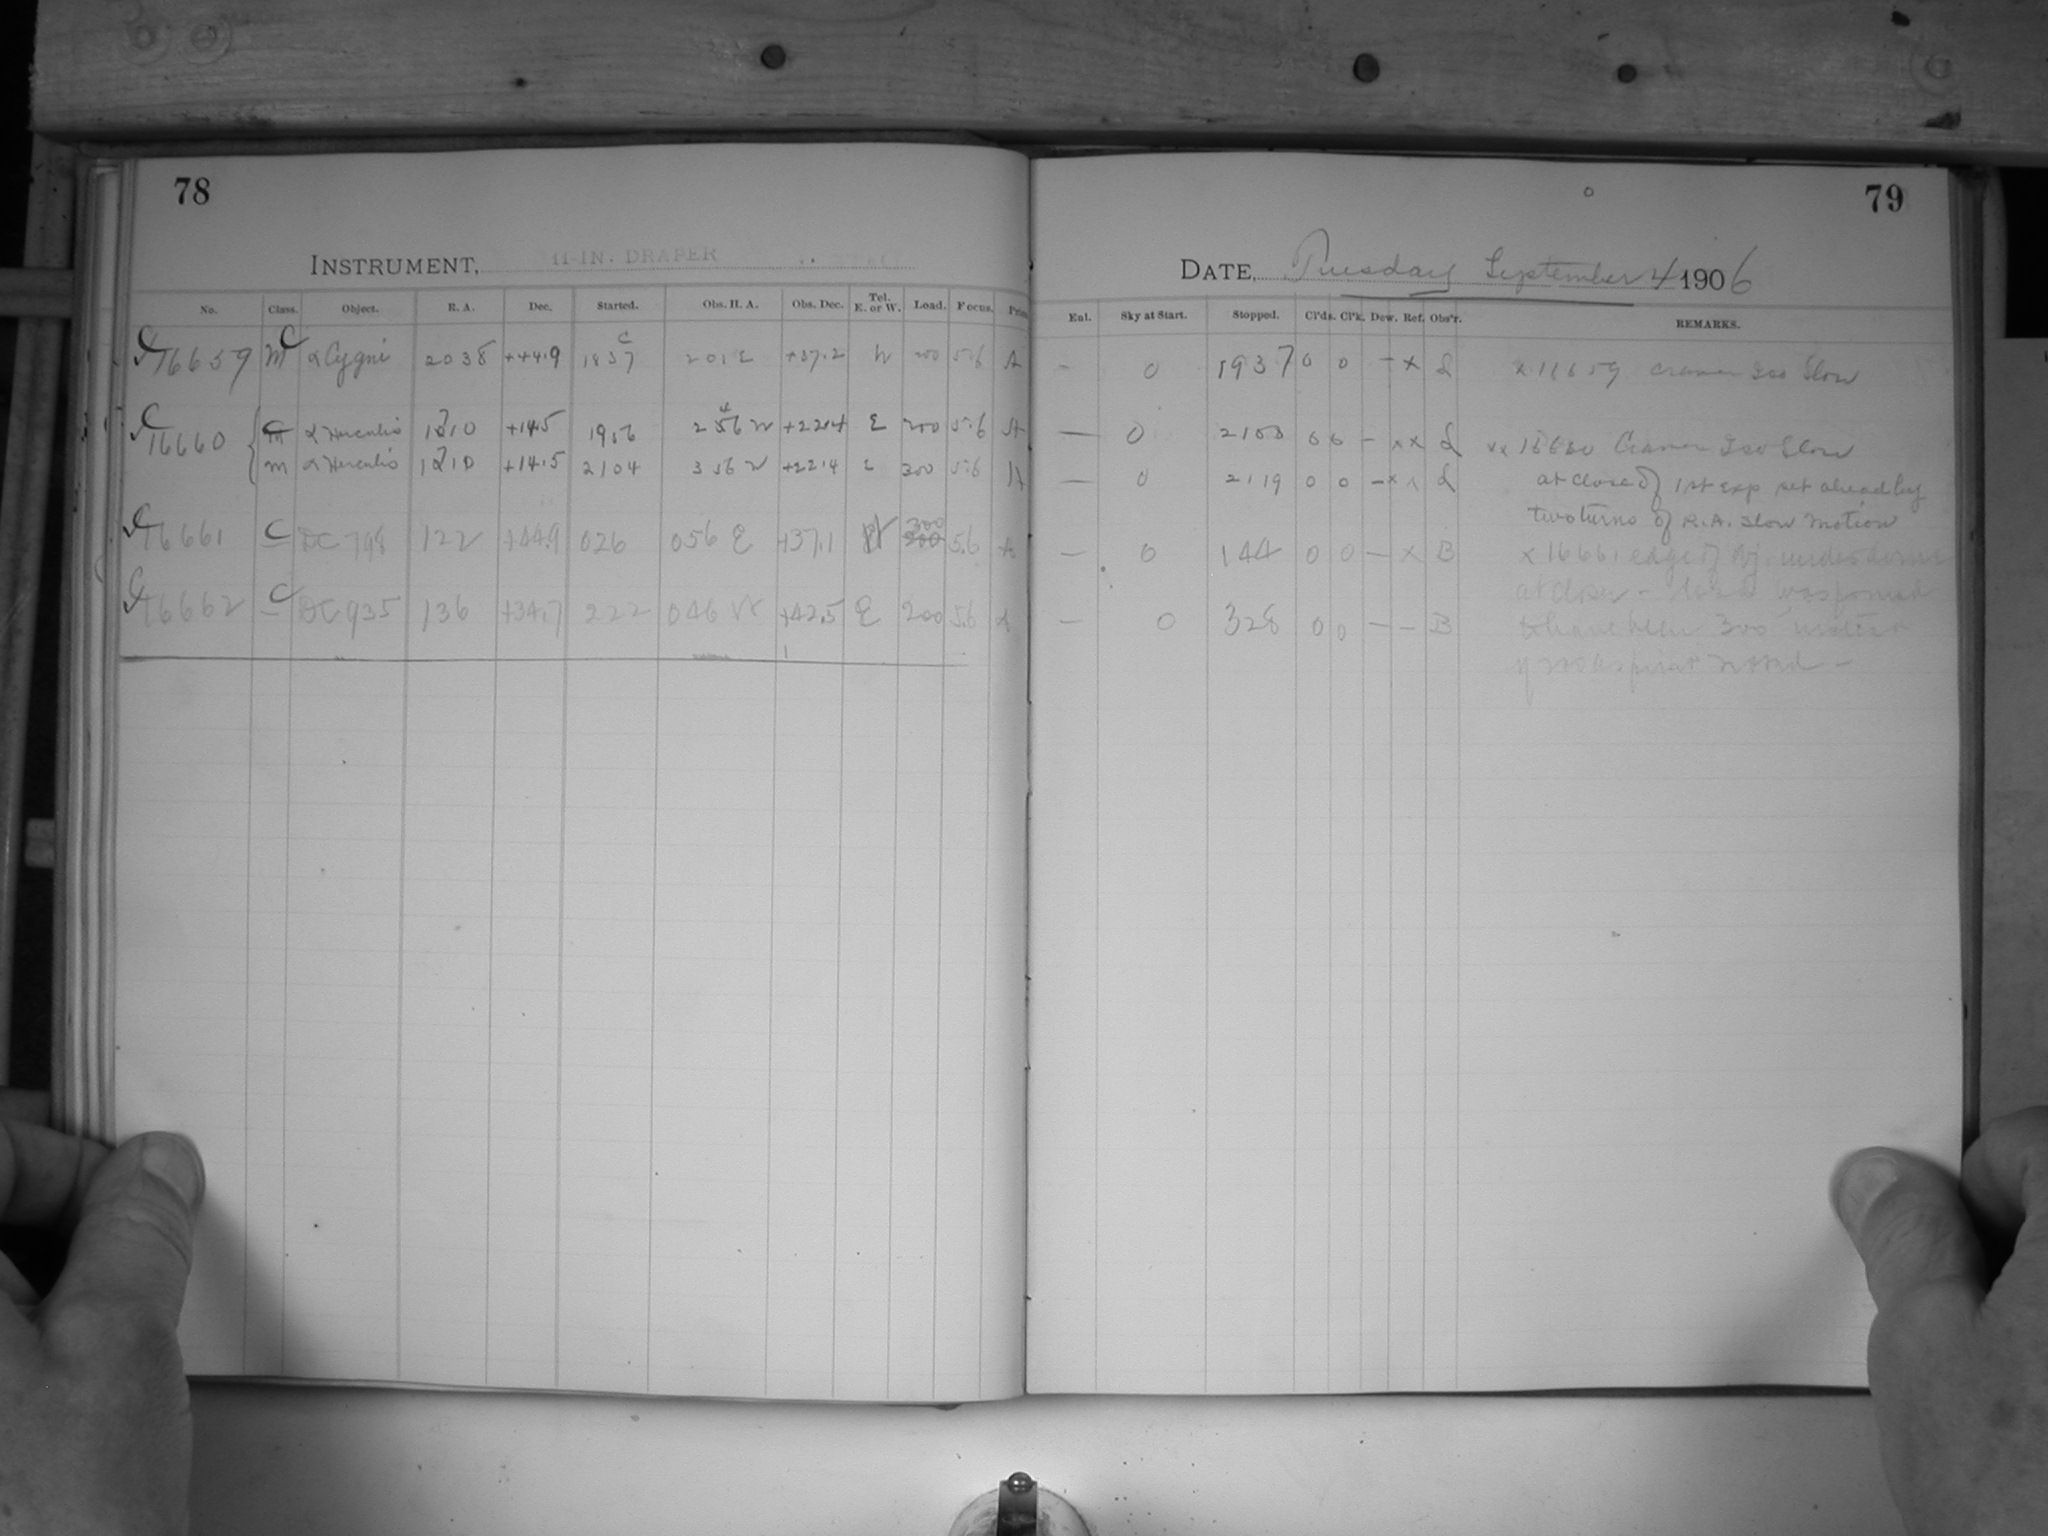 78
INSTRUMENT, 11-IN. DRAPER
No. Class. Object. R. A. Dec. Started. Obs. H. A. Obs. Dec. Tel. E. or W. Load. Focus.
16659 m C α Cygni 2038 +44.9 1837 201 E +37.2 W 200 5.6 A
16660 C α Herculis 1710 +14.5 1956 256 W +22.4 E 200 5.6 A
m α Herculis 1710 +14.5 2104 356 W +22.4 E 300 5.6 A
16661 C DC 798 122 +44.9 026 056 E +37.1 W 300 5.6 A
16662 C DC 935 136 +34.7 222 046 W +42.5 E 200 5.6 A
79
DATE, Tuesday September 4 1906
Enl. Sky at Start. Stopped. Cl'ds. Cl'k. Dew. Ref. Obs'r. REMARKS.
— 0 1937 0 0 — x L x 16659 Cramer Iso Slow
— 0 2103 0 0 — x x L xx 16660 Cramer Iso Slow
— 0 2119 0 0 — x x L at close of 1st exp set ahead by
two turns of R.A. slow motion
— 0 144 0 0 — x B x 16661 edge of obj. under dome
at close — load was found
— 0 328 0 0 — — B to have been 300 instead
of 200 as first noted —